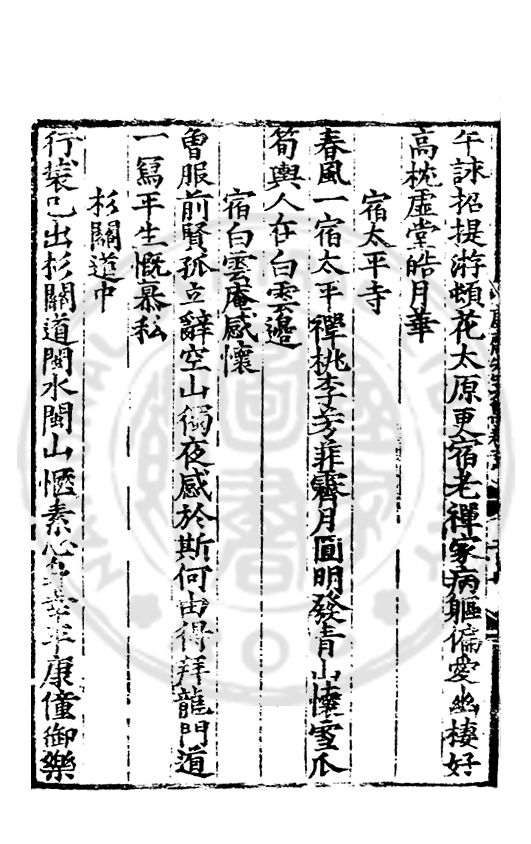 午誄招提游頓花太原更宿老禪家病軀偏愛幽棲好
高枕虛堂皓月華
宿太平寺
春風一宿太平禪桃李芳菲霽月圓明發青山慵雪爪
筍輿人在白雲邊
宿白雲庵感懷
魯服前賢孤立辭空山獨夜感於斯何由得拜龍門道
一寫平生慨慕私
杉關道中
行裝已出杉關道閩水閩山愜素心年幸平康僮御樂